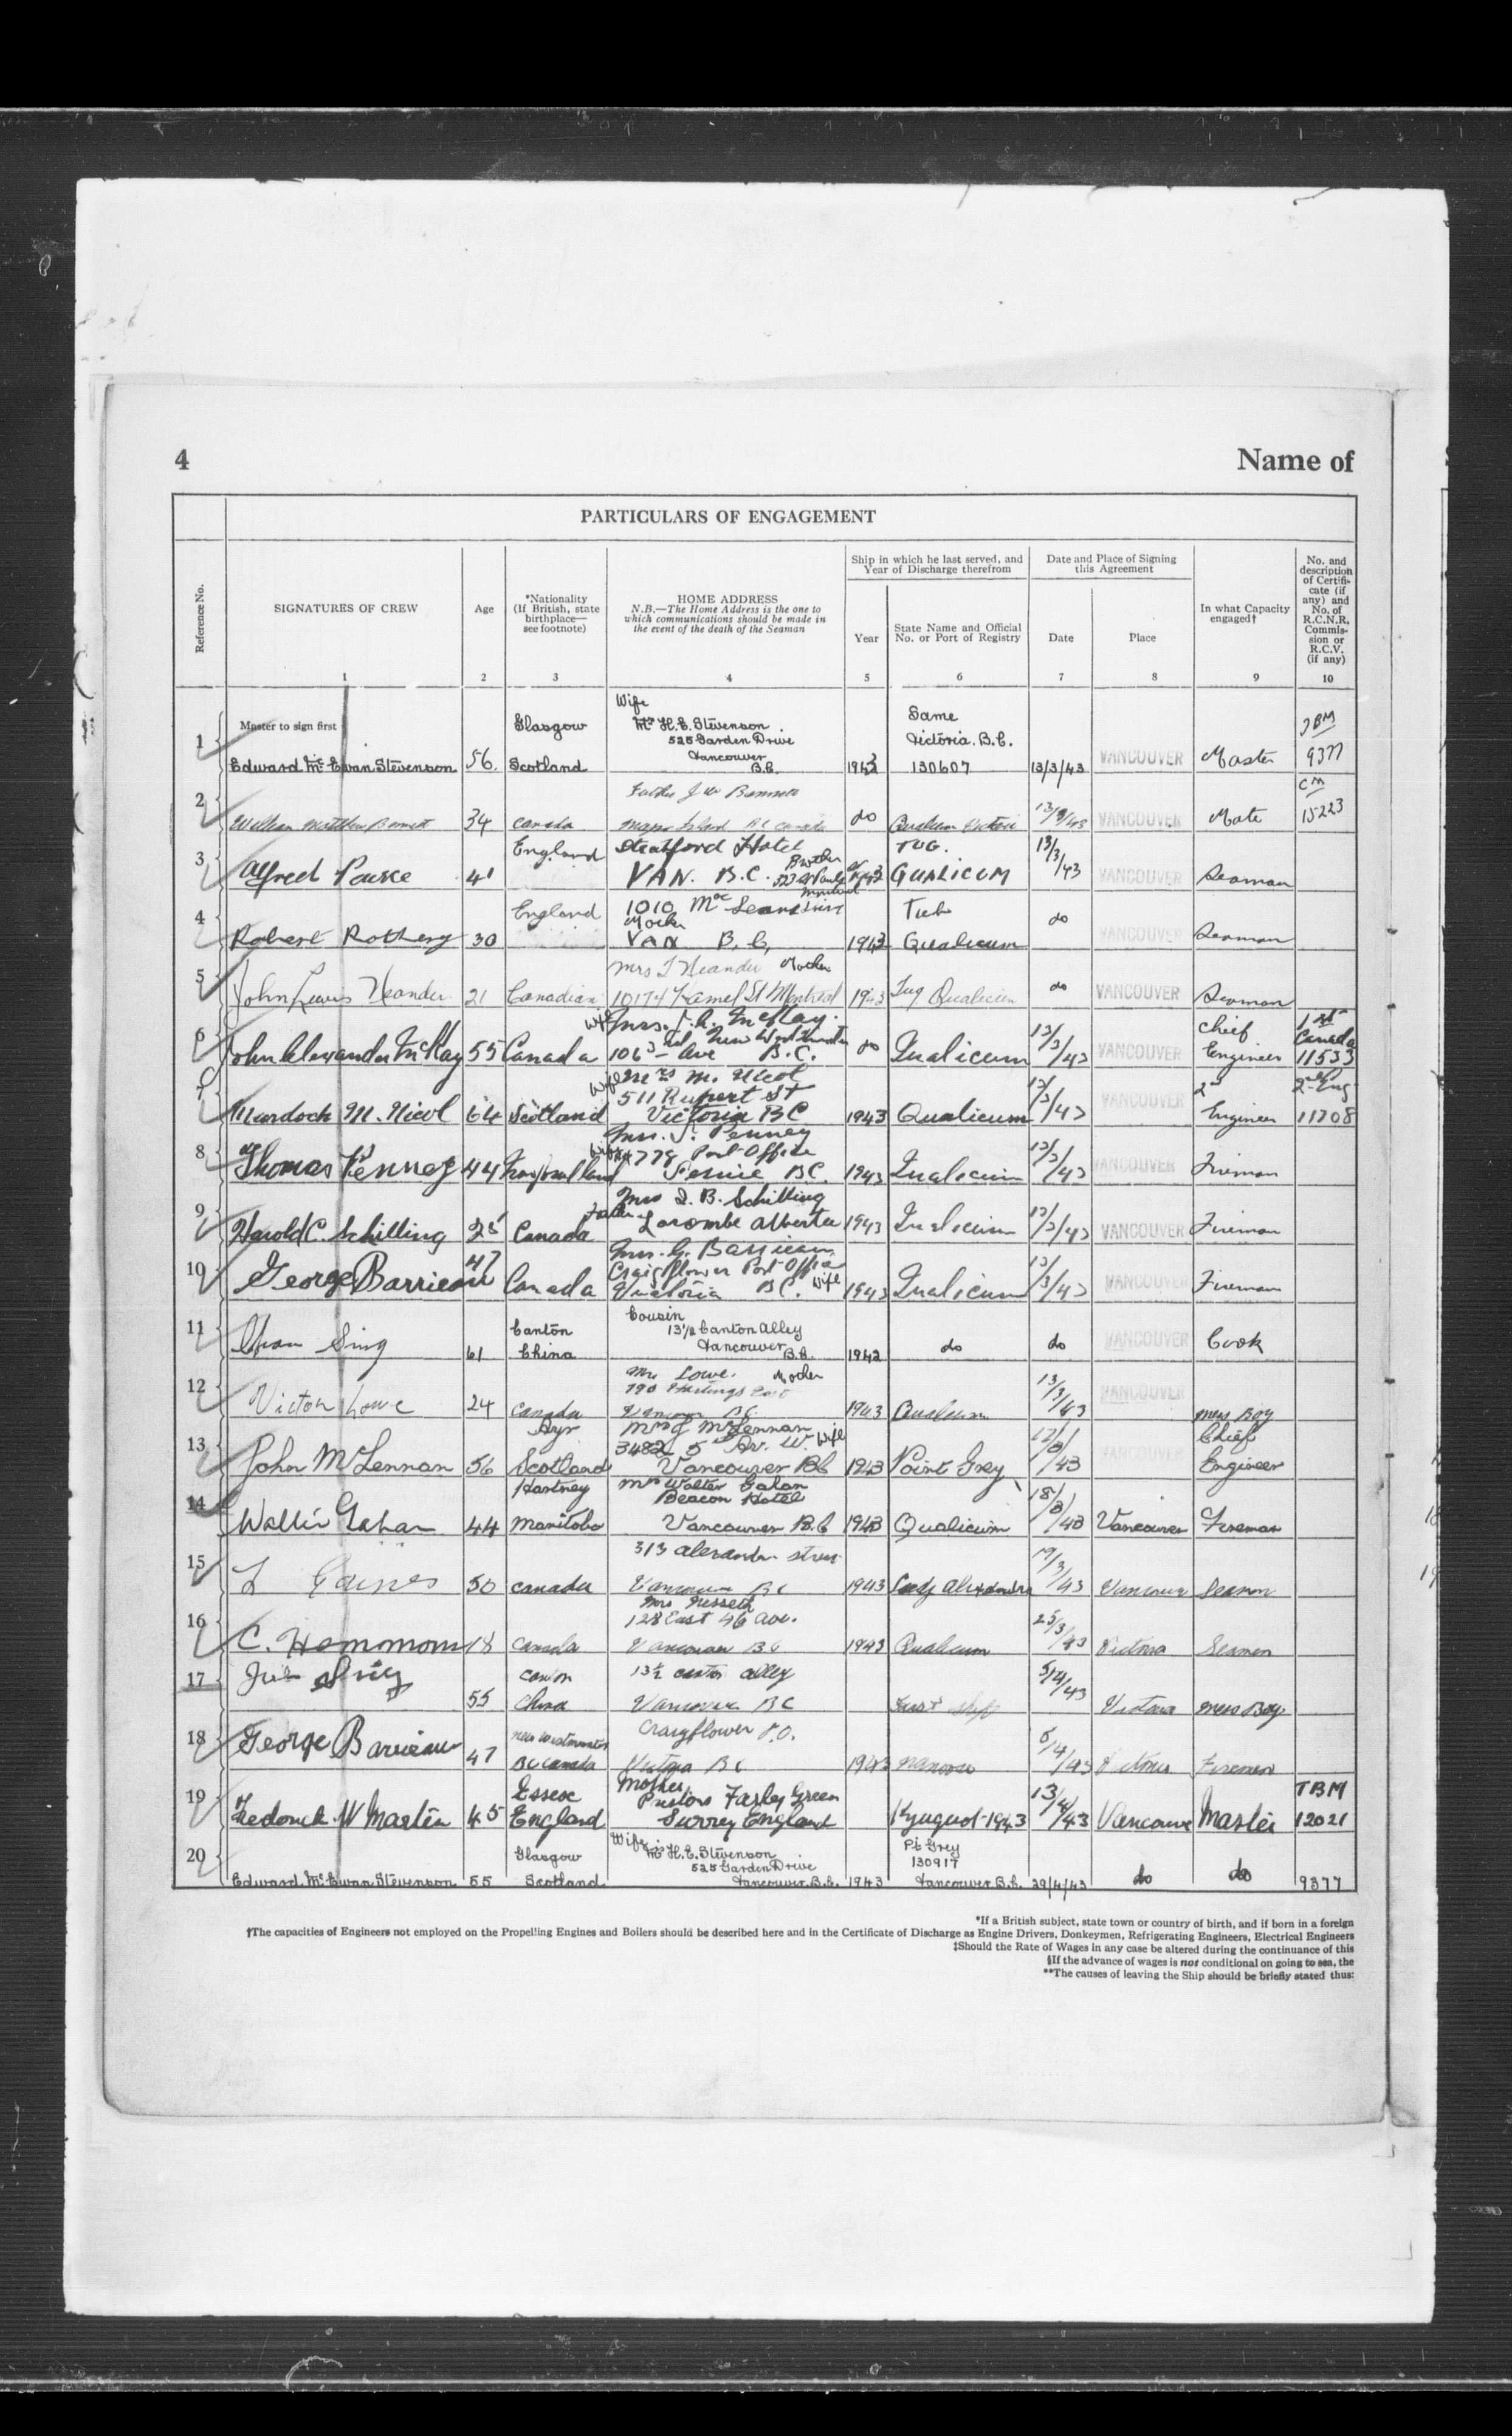 4
Name of
PARTICULARS OF ENGAGEMENT
Reference No.
SIGNATURES OF CREW
Age
*Nationality
(If British, state
birthplace—
see footnote)
HOME ADDRESS
N.B.—The Home Address is the one to
which communications should be made in
the event of the death of the Seaman
Ship in which he last served, and
Year of Discharge therefrom
Year
State Name and Official
No. or Port of Registry
Date and Place of Signing
this Agreement
Date
Place
In what Capacity
engaged†
No. and
description
of Certifi-
cate (if
any) and
No. of
R.C.N.R.
Commis-
sion or
R.C.V.
(if any)
1 2 3 4 5 6 7 8 9 10
Master to sign first
Wife
Glasgow Mrs H.E. Stevenson Same
525 Garden Drive Victoria. B.C.
1 Edward McEwan Stevenson 56. Scotland Vancouver B.C. 1943 130607 13/3/43 VANCOUVER Master 9377
CM
2 William Matthew 34 Canada Island BC Canada do 13/3/43 VANCOUVER Mate 15223
England Stratford Hotel TUG. 13/3
3 Alfred 41 VAN. B.C. Brother QUALICUM /43 VANCOUVER Seaman
England 1010 Mother do
4 Robert Rothery 30 Van B.C. 1943 Qualicum VANCOUVER Seaman
Mrs Neander Mother
5 John Lewis Neander 21 Canadian 10174 St Montreal 1943 Tug Qualicum do VANCOUVER Seaman
Wife Mrs. J.A. McKay. Chief 1st Canada
6 John Alexander McKay 55 Canada 106 3rd Ave New Westminster B.C. do Qualicum 13/3/43 VANCOUVER Engineer 11533
Wife Mrs M. Nicol
511 Rupert St 2nd 2nd Eng
7 Murdoch M. Nicol 64 Scotland Victoria BC 1943 Qualicum 13/3/43 VANCOUVER Engineer 11708
Mrs. Penney
779 Post Office
8 Thomas Penney 44 Newfoundland Fernie BC. 1943 Qualicum 13/3/43 VANCOUVER Fireman
Mrs B. Schilling
9 Harold C. Schilling 25 Canada Lacombe Alberta 1943 Qualicum 13/3/43 VANCOUVER Fireman
Mrs. G. Barrieau
Craigflower Post Office
10 George Barrieau 47 Canada Victoria BC. Wife 1943 Qualicum 13/3/43 VANCOUVER Fireman
Cousin
Canton 13½ Canton Alley
11 Sing 61 China Vancouver B.C. 1942 do do VANCOUVER Cook
Mrs Lowe. Mother
790 Hastings East
12 Victor Lowe 24 Canada Vancouver BC. 1943 Qualicum 13/3/43 VANCOUVER Mess Boy
Ayr Mrs J McLennan
3482 5th Av. W. Wife Chief
13 John McLennan 56 Scotland Vancouver BC 1943 Point Grey /43 VANCOUVER Engineer
Hartney Mrs Walter
Beacon Hotel
14 44 Manitoba Vancouver B.C 1943 Qualicum 18/3/43 Vancouver Fireman
313 Alexander Street
15 Gaines 50 Canada Vancouver BC 1943 Lady Alexandra 19/3/43 Vancouver Seaman
Mrs
128 East 46 Ave.
16 C. Hammom 18 Canada Vancouver BC 1943 Qualicum 25/3/43 Victoria Seaman
Canton 13½ Canton Alley
17 55 China Vancouver BC First Ship 5/4/43 Victoria Mess Boy
New Westminster Craigflower P.O.
18 George Barrieau 47 BC Canada Victoria BC 1943 Nanoose /4/43 Victoria Fireman
Essex Mother, TBM
Farley Green
19 Fredrick. W Martin 45 England Surrey England 1943 13/4/43 Vancouver Master 12021
Glasgow Wife Mrs H.E. Stevenson Pt Grey
525 Garden Drive 130917
20 Edward McEwan Stevenson 55 Scotland Vancouver. B.C. 1943 Vancouver B.C. 29/4/43 do do 9377
*If a British subject, state town or country of birth, and if born in a foreign
†The capacities of Engineers not employed on the Propelling Engines and Boilers should be described here and in the Certificate of Discharge as Engine Drivers, Donkeymen, Refrigerating Engineers, Electrical Engineers
‡Should the Rate of Wages in any case be altered during the continuance of this
§If the advance of wages is not conditional on going to sea, the
**The causes of leaving the Ship should be briefly stated thus: